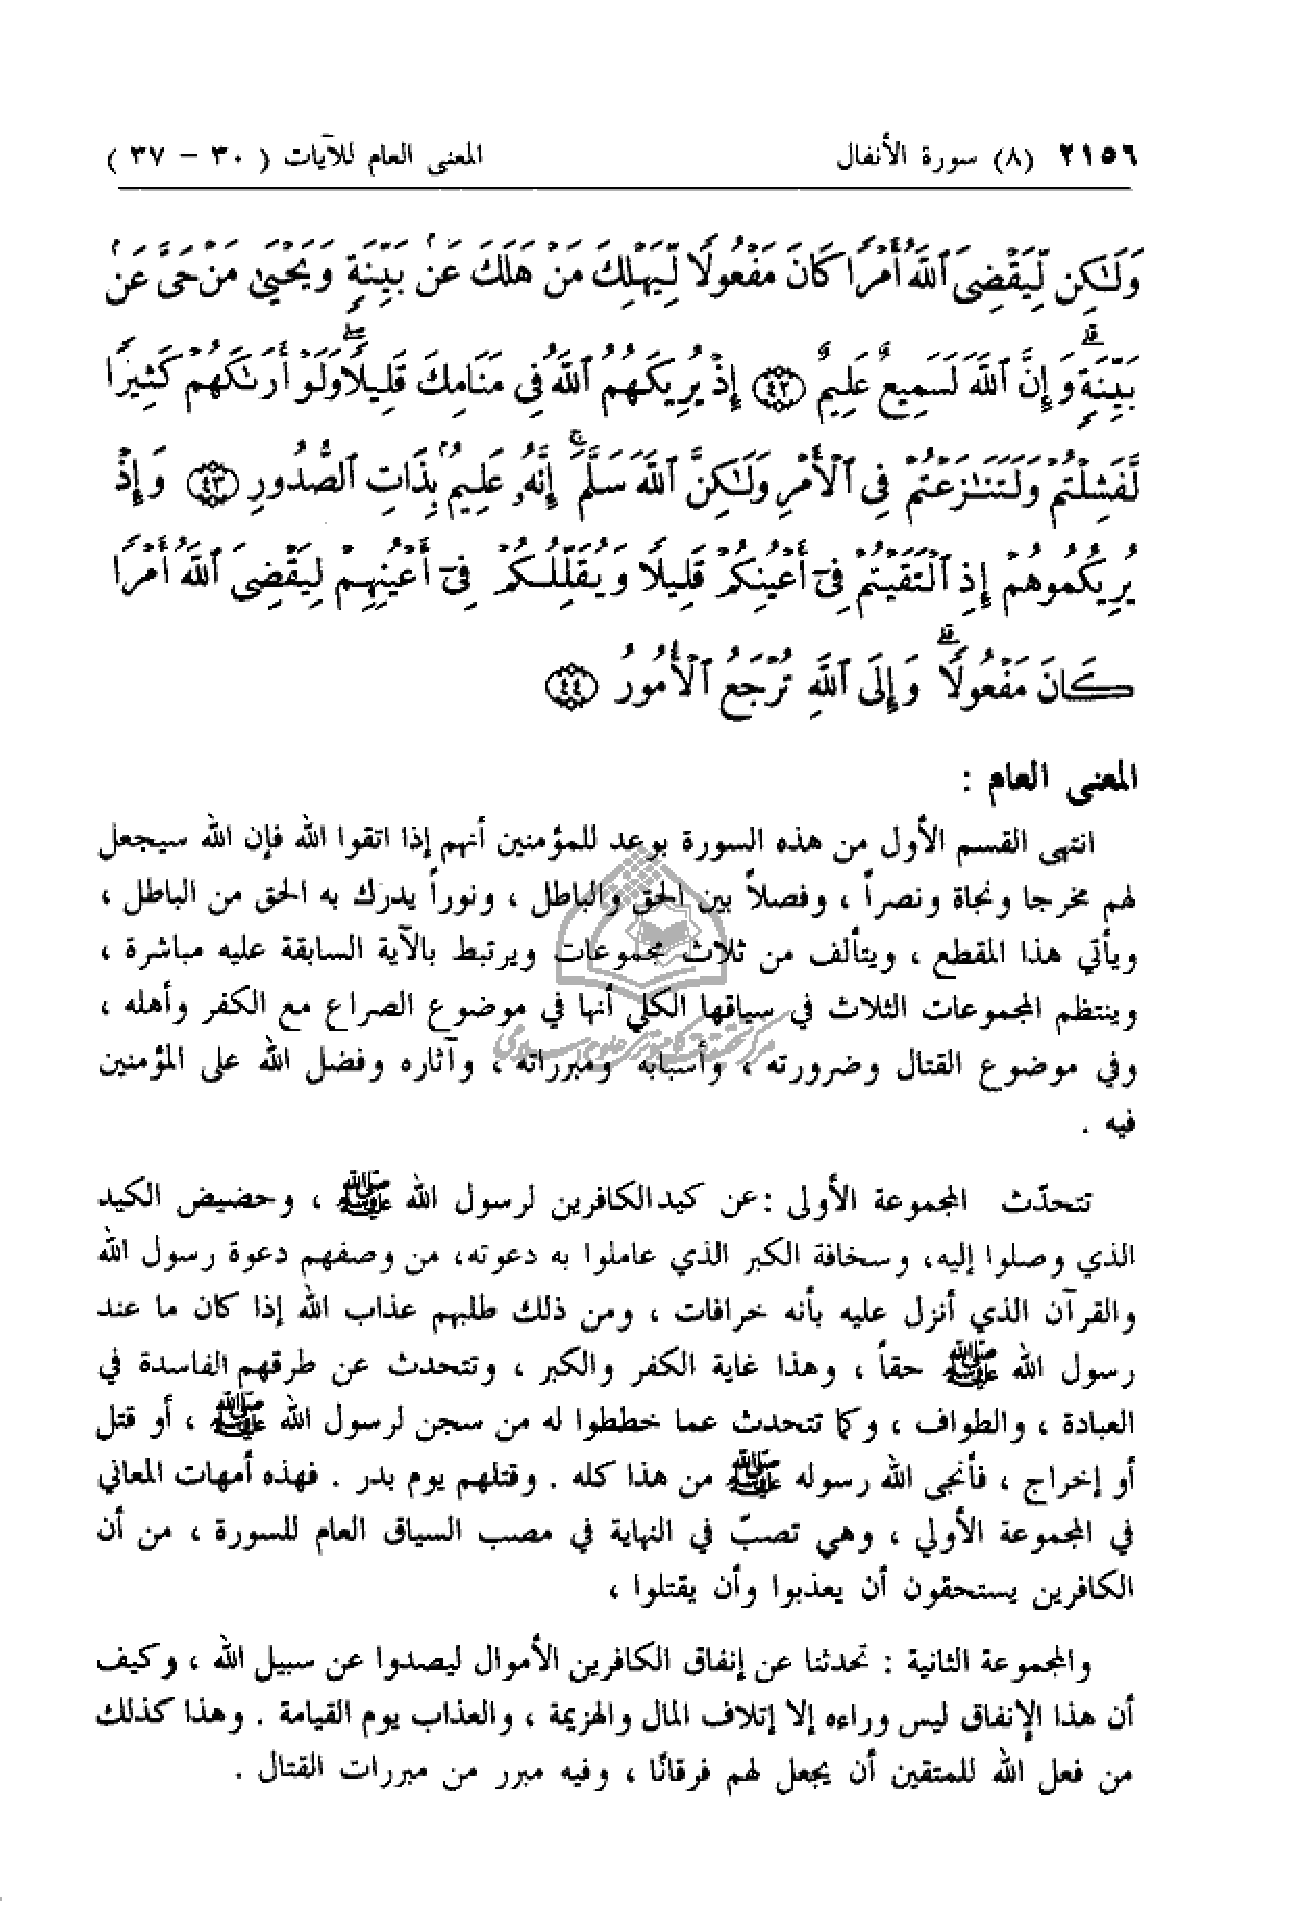 ٢١٥٦ (٨) سورة الأنفال المعنى العام للآيات ( ٣٠ - ٣٧ )
وَلَٰكِن لِّيَقْضِىَ ٱللَّهُ أَمْرًا كَانَ مَفْعُولًا لِّيَهْلِكَ مَنْ هَلَكَ عَنۢ بَيِّنَةٍ وَيَحْيَىٰ مَنْ حَىَّ عَنۢ
بَيِّنَةٍ ۗ وَإِنَّ ٱللَّهَ لَسَمِيعٌ عَلِيمٌ ﴿٤٢﴾ إِذْ يُرِيكَهُمُ ٱللَّهُ فِى مَنَامِكَ قَلِيلًا ۖ وَلَوْ أَرَىٰكَهُمْ كَثِيرًا
لَّفَشِلْتُمْ وَلَتَنَٰزَعْتُمْ فِى ٱلْأَمْرِ وَلَٰكِنَّ ٱللَّهَ سَلَّمَ ۚ إِنَّهُۥ عَلِيمٌۢ بِذَاتِ ٱلصُّدُورِ ﴿٤٣﴾ وَإِذْ
يُرِيكُمُوهُمْ إِذِ ٱلْتَقَيْتُمْ فِىٓ أَعْيُنِكُمْ قَلِيلًا وَيُقَلِّلُكُمْ فِىٓ أَعْيُنِهِمْ لِيَقْضِىَ ٱللَّهُ أَمْرًا
كَانَ مَفْعُولًا ۗ وَإِلَى ٱللَّهِ تُرْجَعُ ٱلْأُمُورُ ﴿٤٤﴾
المعنى العام :
انتهى القسم الأول من هذه السورة بوعد للمؤمنين أنهم إذا اتقوا الله فإن الله سيجعل
لهم مخرجا ونجاة ونصراً ، وفصلاً بين الحق والباطل ، ونوراً يدرك به الحق من الباطل ،
ويأتي هذا المقطع ، ويتألف من ثلاث مجموعات ويرتبط بالآية السابقة عليه مباشرة ،
وينتظم المجموعات الثلاث في سياقها الكلي أنها في موضوع الصراع مع الكفر وأهله ،
وفي موضوع القتال وضرورته ، وأسبابه ومبرراته ، وآثاره وفضل الله على المؤمنين
فيه .
تتحدّث المجموعة الأولى : عن كيد الكافرين لرسول الله ﷺ ، وحضيض الكيد
الذي وصلوا إليه، وسخافة الكبر الذي عاملوا به دعوته، من وصفهم دعوة رسول الله
والقرآن الذي أنزل عليه بأنه خرافات ، ومن ذلك طلبهم عذاب الله إذا كان ما عند
رسول الله ﷺ حقاً ، وهذا غاية الكفر والكبر ، وتتحدث عن طرقهم الفاسدة في
العبادة ، والطواف ، وكما تتحدث عما خططوا له من سجن لرسول الله ﷺ ، أو قتل
أو إخراج ، فأنجى الله رسوله ﷺ من هذا كله . وقتلهم يوم بدر . فهذه أمهات المعاني
في المجموعة الأولي ، وهي تصبّ في النهاية في مصب السياق العام للسورة ، من أن
الكافرين يستحقون أن يعذبوا وأن يقتلوا ،
والمجموعة الثانية : تحدثنا عن إنفاق الكافرين الأموال ليصدوا عن سبيل الله ، وكيف
أن هذا الإنفاق ليس وراءه إلا إتلاف المال والهزيمة ، والعذاب يوم القيامة . وهذا كذلك
من فعل الله للمتقين أن يجعل لهم فرقانًا ، وفيه مبرر من مبررات القتال .